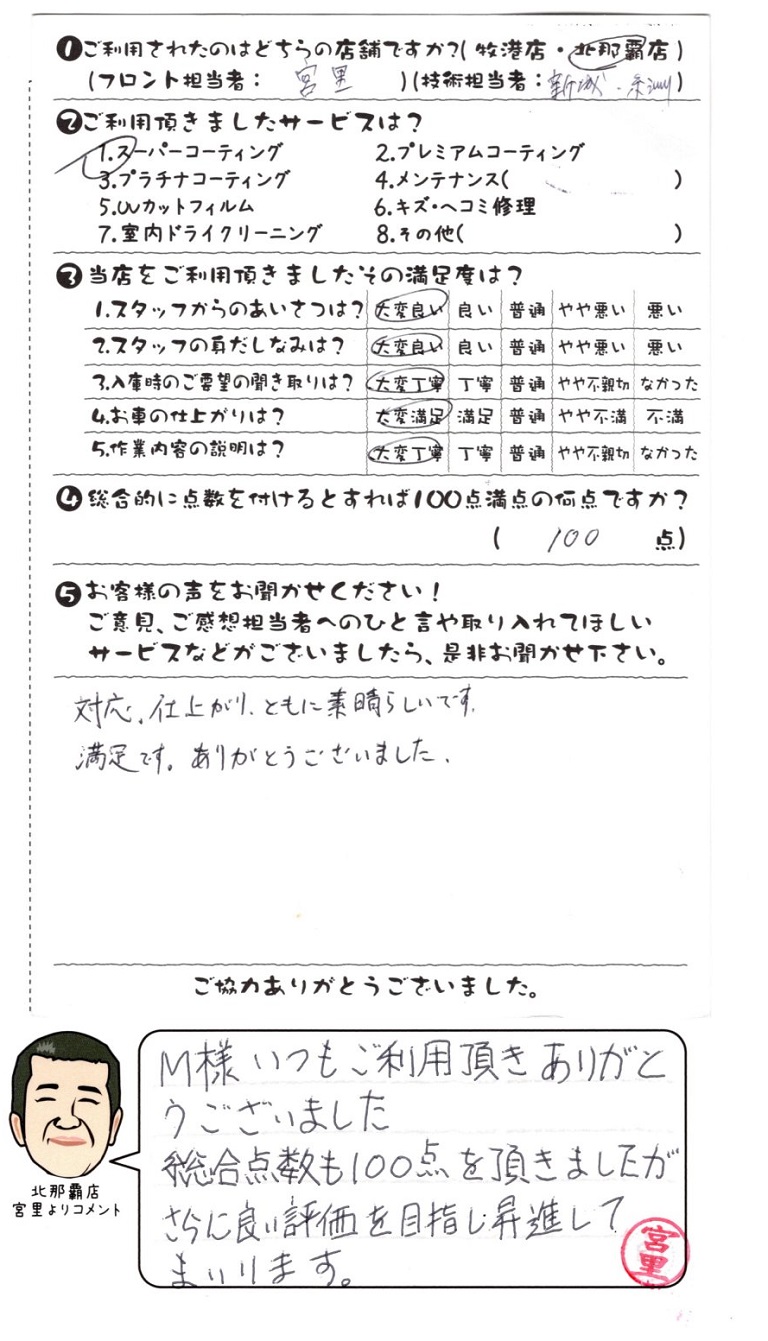 ❶ご利用されたのはどちらの店舗ですか?(牧港店・北那覇店)
(フロント担当者: 宮里 )(技術担当者: 新城・ )
❷ご利用頂きましたサービスは?
1.スーパーコーティング 2.プレミアムコーティング
3.プラチナコーティング 4.メンテナンス( )
5.UVカットフィルム 6.キズ・ヘコミ修理
7.室内ドライクリーニング 8.その他( )
❸当店をご利用頂きましたその満足度は?
1.スタッフからのあいさつは? 大変良い 良い 普通 やや悪い 悪い
2.スタッフの身だしなみは? 大変良い 良い 普通 やや悪い 悪い
3.入庫時のご要望の聞き取りは? 大変丁寧 丁寧 普通 やや不親切 なかった
4.お車の仕上がりは? 大変満足 満足 普通 やや不満 不満
5.作業内容の説明は? 大変丁寧 丁寧 普通 やや不親切 なかった
❹総合的に点数を付けるとすれば100点満点の何点ですか?
( 100 点)
❺お客様の声をお聞かせください!
ご意見、ご感想担当者へのひと言や取り入れてほしい
サービスなどがございましたら、是非お聞かせ下さい。
対応、仕上がり、ともに素晴らしいです。
満足です。ありがとうございました。
ご協力ありがとうございました。
M様いつもご利用頂きありがと
うございました
総合点数も100点を頂きましたが
さらに良い評価を目指し昇進して
まいります。
宮里
北那覇店
宮里よりコメント